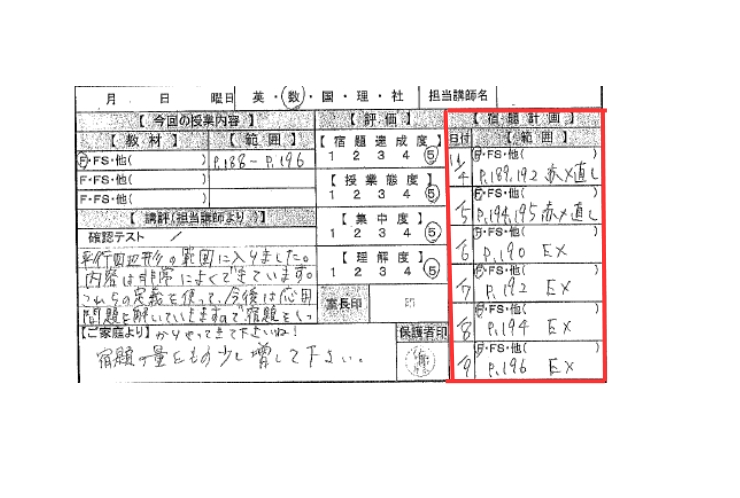 月 日 曜日 英・数・国・理・社 担当講師名
【 今回の授業内容 】
【 教 材 】 【 範 囲 】
F・FS・他( ) P.188－P.196
F・FS・他( )
F・FS・他( )
【 講評(担当講師より) 】
確認テスト /
平行四辺形の範囲に入りました。
内容は非常によくできています。
これらの定義を使って、今後は応用
問題を解いていきますので宿題をしっ
かりやってきて下さいね!
【ご家庭より】
宿題の量をもう少し増して下さい。
【 評 価 】
【 宿 題 達 成 度 】
1 2 3 4 5
【 授 業 態 度 】
1 2 3 4 5
【 集 中 度 】
1 2 3 4 5
【 理 解 度 】
1 2 3 4 5
室長印 印
保護者印
【 宿 題 計 画 】
日付 【 範 囲 】
11/4 F・FS・他( )
P.189,192 赤〆直し
/5 F・FS・他( )
P.194,195 赤〆直し
/6 F・FS・他( )
P.190 EX
/7 F・FS・他( )
P.192 EX
/8 F・FS・他( )
P.194 EX
/9 F・FS・他( )
P.196 EX